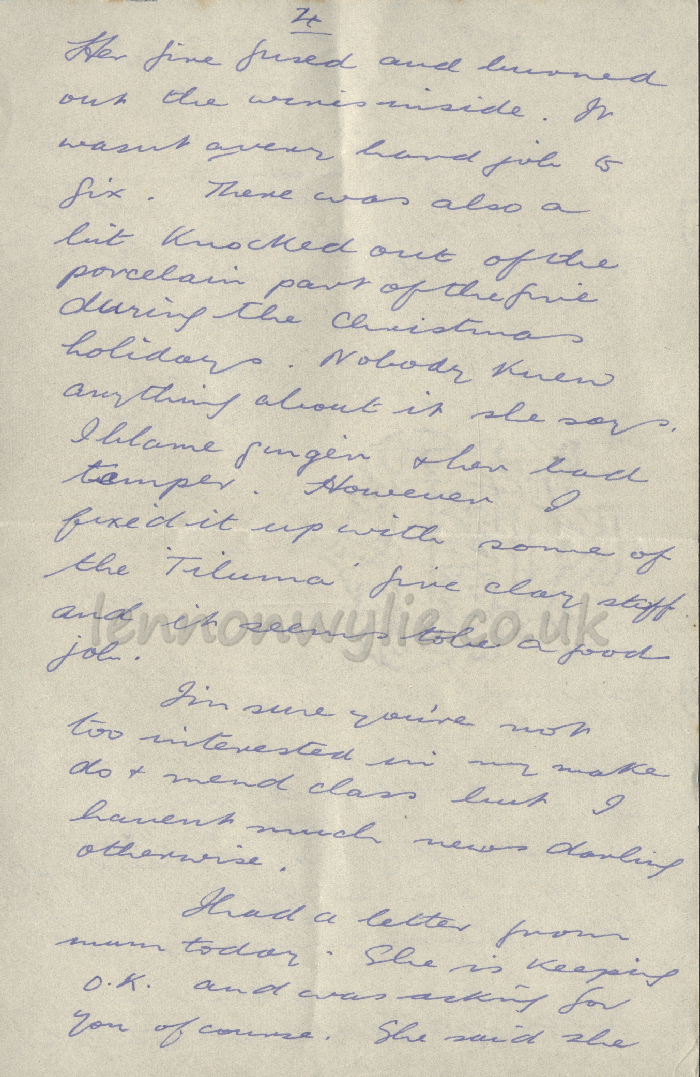 4
Her fire fused and burned
out the wires inside. It
wasnt a very hard job to
fix. There was also a
bit knocked out of the
porcelain part of the fire
during the Christmas
holidays. Nobody knew
anything about it she says.
I blame ginger & her bad
temper. However I
fixed it up with some of
the 'Tiluma' fire clay stuff
and it seems to be a good
job.
lennonwylie.co.uk
I'm sure you're not
too interested in my make
do & mend class but I
havent much news darling
otherwise.
I had a letter from
mum today. She is keeping
O.K. and was asking for
you of course. She said she